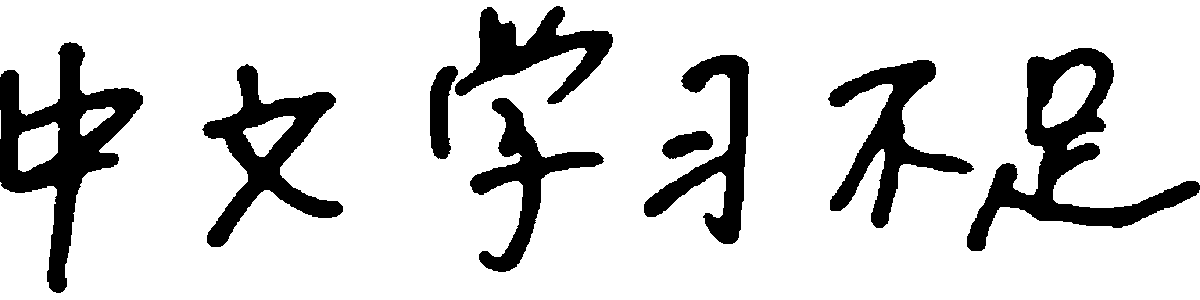 中文学习不足